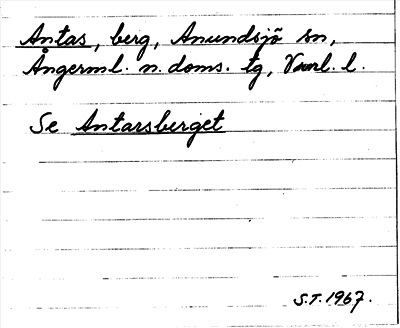 Antas, berg, Anundsjö sn,
Ångerml. n. doms. tg, Vnrl. l.
Se Antarsberget
S.T. 1967.